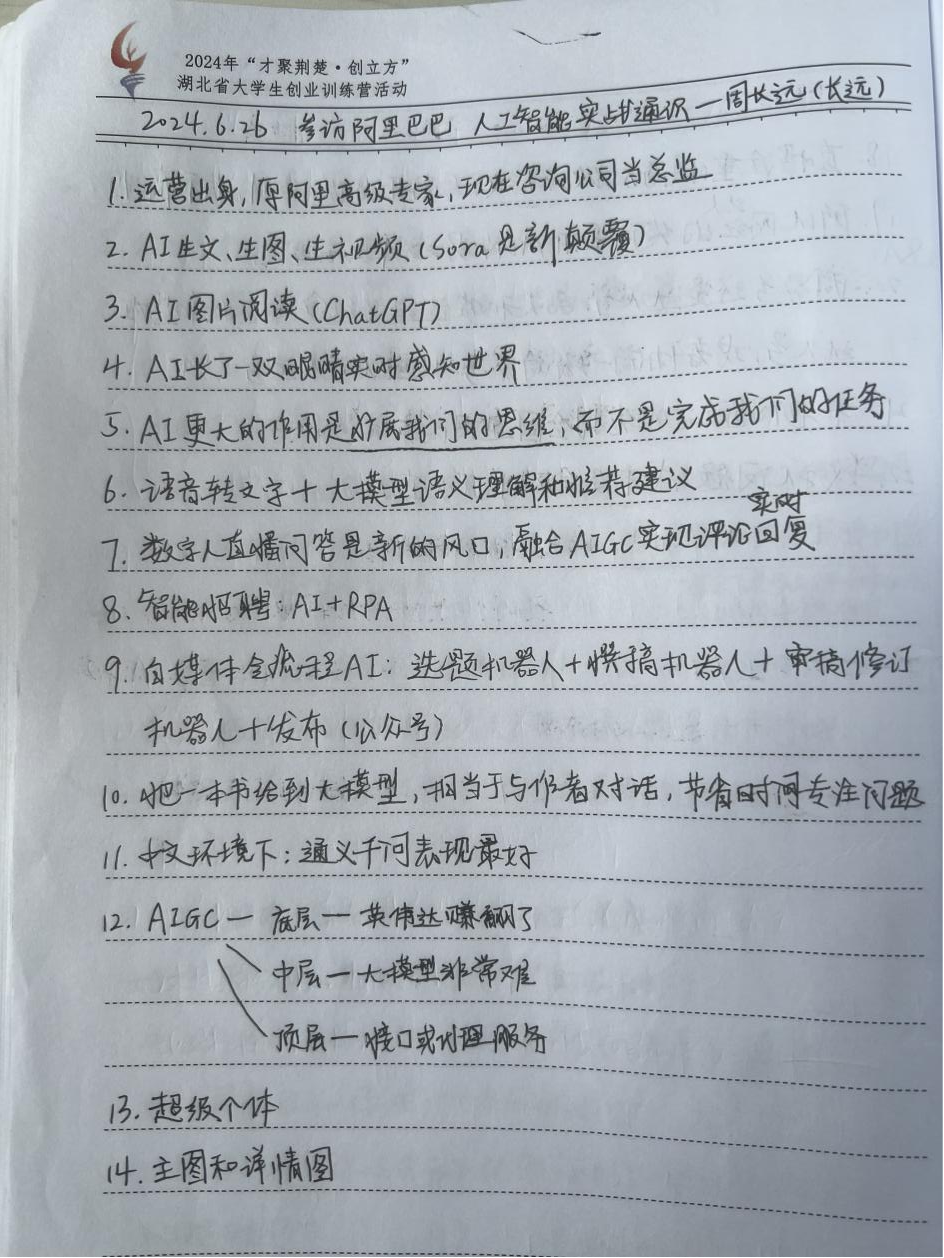 2024年“才聚荆楚·创立方”
湖北省大学生创业训练营活动
2024.6.26 参访阿里巴巴 人工智能实战通识—周长远(长远)
1.运营出身,原阿里高级专家,现在咨询公司当总监
2.AI生文、生图、生视频(Sora是新颠覆)
3.AI图片阅读(ChatGPT)
4.AI长了一双眼睛实时感知世界
5.AI更大的作用是扩展我们的思维,而不是完成我们的任务
6.语音转文字+大模型语义理解和推荐建议
7.数字人直播问答是新的风口,融合AIGC实现评论实时回复
8.智能招聘:AI+RPA
9.自媒体全流程AI:选题机器人+撰稿机器人+审稿修订
机器人+发布(公众号)
10.把一本书给到大模型,相当于与作者对话,节省时间专注问题
11.中文环境下:通义千问表现最好
12.AIGC—底层—英伟达赚翻了
中层—大模型非常难
顶层—接口或代理服务
13.超级个体
14.主图和详情图